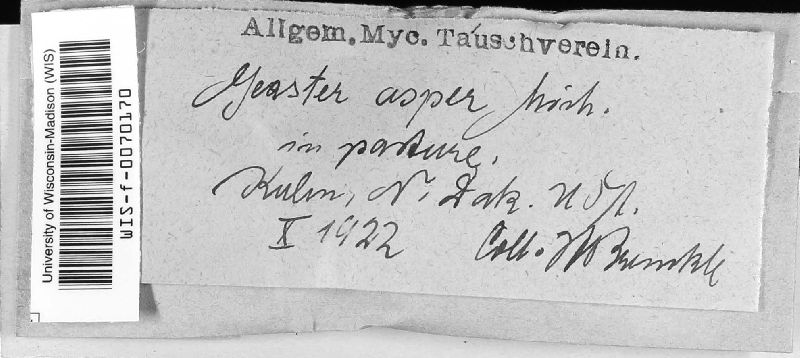 Allgem. Myc. Tauschverein.
Geaster asper Mich.
in pasture.
Kulm, N. Dak. USA.
X 1922 Coll. J F Brenckle
University of Wisconsin-Madison (WIS)
WIS-f-0070170